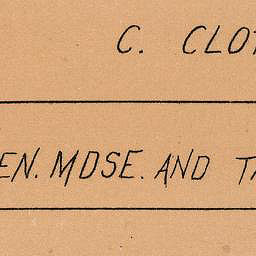 C. CLOT
EN. MDSE. AND TA